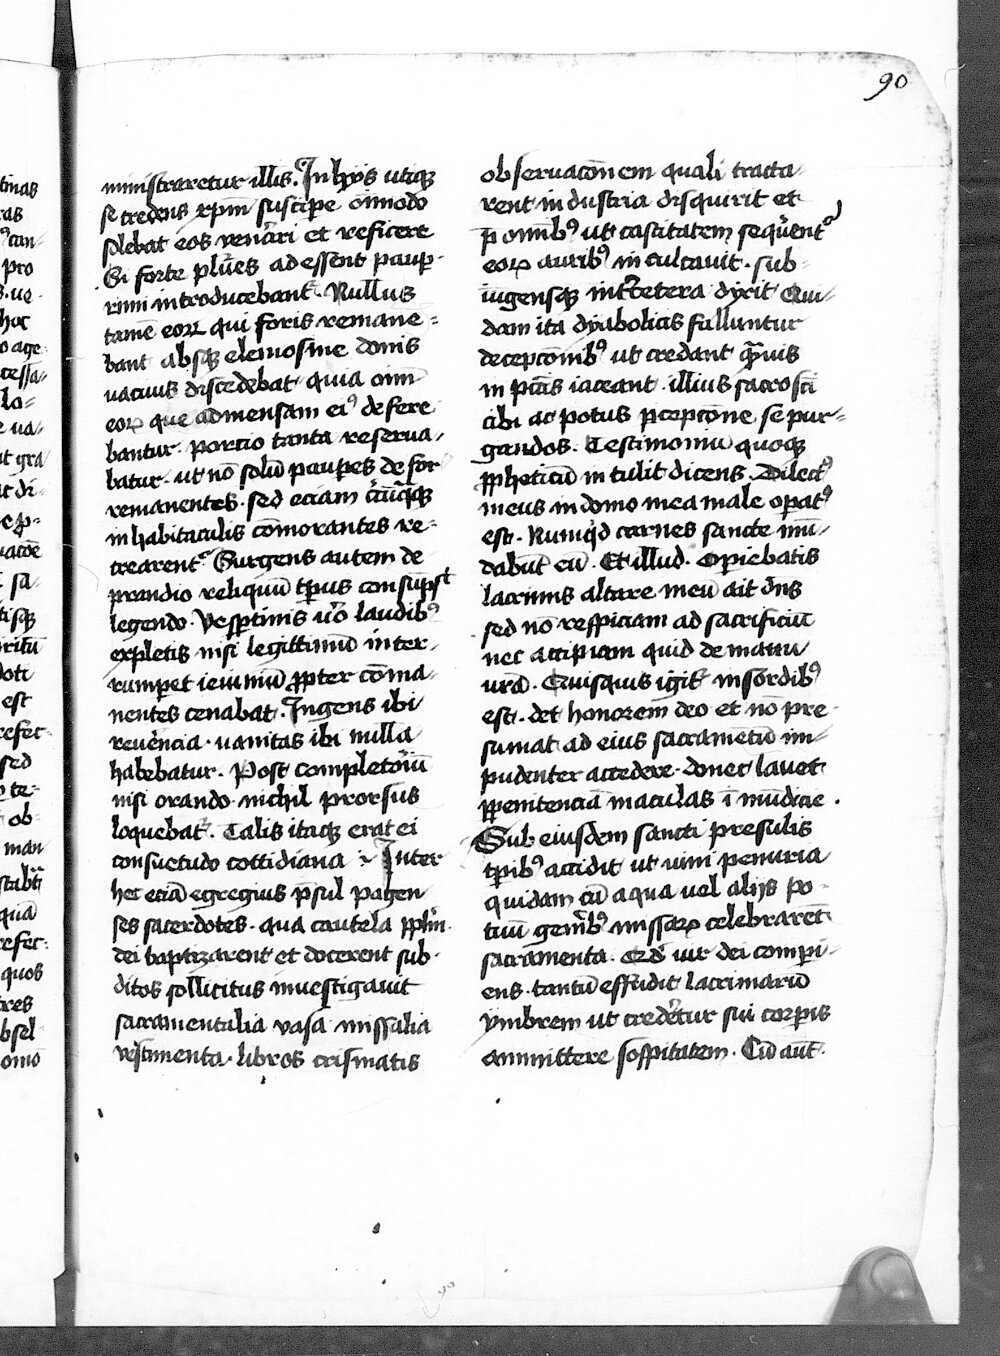 90
ministraretur illis. In hÿs utiqꝫ
se credens xpm̄ suscipe om̄imodo
solebat eos venerari et reficere
Si forte plūes adessent paup-
rimi introducebant᷑. Nullus
tamē eoꝝ qui foris remane=
bant absqꝫ elemosine donis
vacuus discedebat quia om̄i
eoꝝ que ad mensam eiꝰ defere
bantur. porcio tanta reserua-
batur. ut nō solū pauꝑes de for
remanentes. sed eciam
in habitaculis cōmorantes re=
crearent᷑ Surgens autem de
prandio reliquū tp̄us consūpsit
legendo. Vesꝑtinis v̄o laudibꝰ
expletis nisi legittimū inter-
rumperet ieiuniū ꝓpter cōma-
nentes cenabat. Ingens ibi
reuerēcia. vanitas ibi nulla
habebatur. Post completoriū
nisi orando nichil prorsus
loquebat᷑. Talis itaqꝫ erat ei
consuetudo cottidiana Inter
hec eciā egregius p̄sul pagen
ses sacerdotes. qua cautela pplm̄
dei baptizarent et docerent sub-
ditos sollicitus inuestigauit
sacramentalia vasa missalia
vestimenta. libros crismatis
obseruacōnem quali tracta-
rent industria disquirit et
p̄ om̄ibꝰ ut castitatem sequerent᷑
eoꝝ auribꝰ inculcauit. sub-
iugensqꝫ inter cetera dyxit Qui-
dam ita dyabolicis falluntur
decepcōnibꝰ ut credant quāuis
in pctīs iaceant illius sacroscī
cibi ac potus ꝑcepcōne se pur=
gandos. Testimoniū quoqꝫ
ꝓpheticū intulit dicens. Dilectꝰ
meus in domo mea male opatꝰ
est. Nunqd carnes sancte mū-
dabūt eū. Et illud. Operiebatis
lacrimis altare meū ait dn̄s
sed nō respiciam ad sacrificiū
nec accipiam quid de manu
vrā. Quisquis igit᷑ in sordibꝰ
est. det honorem deo et nō pre
sumat ad eius sacrametū im-
pudenter accedere. donec lauet
ꝑ penitenciā maculas īmūdicie.
Sub eiusdem sancti presulis
tp̄ibꝰ accidit ut vini penuria
quidam cū aqua vel alijs po-
tuū genibꝰ missaꝝ celebrarēt
sacramenta. Qd̄ vir dei comperi-
ens. tantū effudit lacrimarū
ymbrem ut crederetur sui corpis
ammittere sospitatem. Cū aut̄